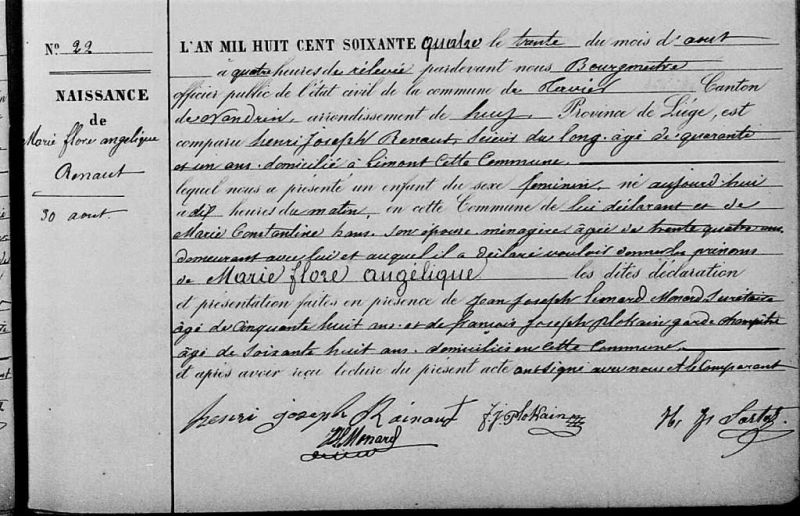 N.° 22
NAISSANCE
de
Marie flore angélique
Renaut
30 aout
L'AN MIL HUIT CENT SOIXANTE quatre le trente du mois d'aout
à quatre heures de relevée pardevant nous Bourgmestre
officier public de l'état civil de la commune de Canton
de Nandrin, arrondissement de huy Province de Liége, est
comparu henri Joseph Renaut, Scieur du long. âgé de quarante
et un ans. domicilié à Limont Cette Commune.
lequel nous a présenté un enfant du sexe feminin, né aujourd'hui
a dix heures du matin, en cette Commune de lui déclarant et de
Marie Constantine hans. Son épouse ménagère âgée de trente quatre ans
demeurant avec lui et auquel il a déclaré vouloir donner les prénoms
de Marie flore angélique les dites déclaration
et présentation faites en présence de Jean Joseph Lienard Monard Secrétaire
âgé de Cinquante huit ans. et de francois Joseph Plokain garde champêtre
âgé de Soixante huit ans. domiciliés en Cette Commune.
et après avoir reçu lecture du present acte ont Signé avec nous et le Comparant
henri joseph Rainaut
f j Plokain
H. J.
Monard